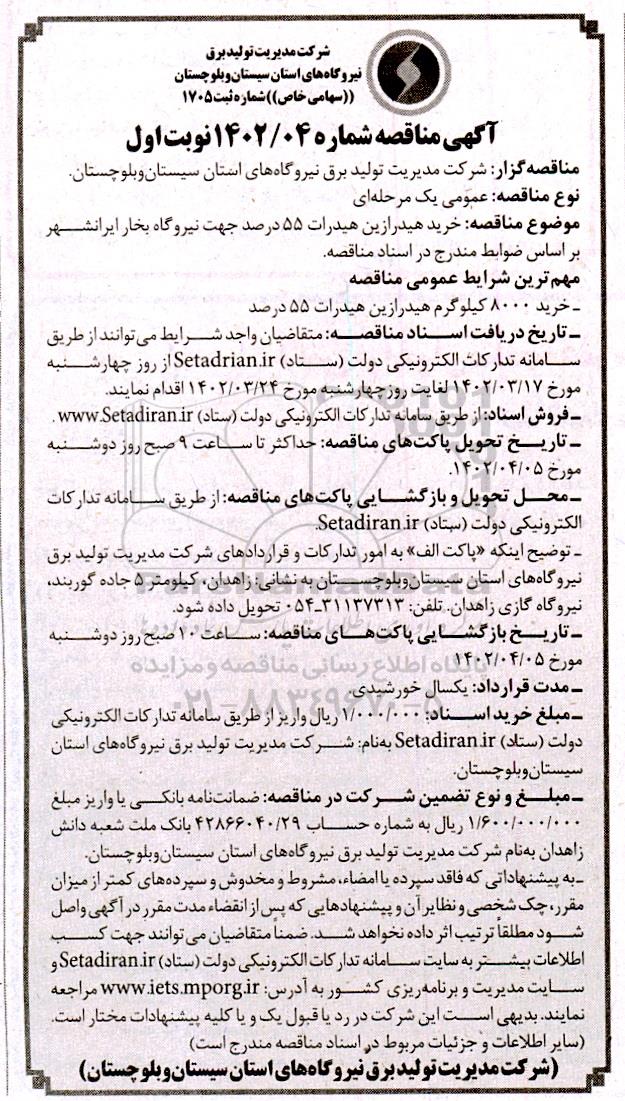 شرکت مدیریت تولید برق
نیروگاه‌های استان سیستان‌وبلوچستان
((سهامی خاص)) شماره ثبت ۱۷۰۵
آگهی مناقصه شماره ۱۴۰۲/۰۴ نوبت اول
مناقصه‌گزار: شرکت مدیریت تولید برق نیروگاه‌های استان سیستان‌وبلوچستان.
نوع مناقصه: عمومی یک مرحله‌ای
موضوع مناقصه: خرید هیدرازین هیدرات ۵۵ درصد جهت نیروگاه بخار ایرانشهر
بر اساس ضوابط مندرج در اسناد مناقصه.
مهم‌ترین شرایط عمومی مناقصه
ـ خرید ۸۰۰۰ کیلوگرم هیدرازین هیدرات ۵۵ درصد
ـ تاریخ دریافت اسناد مناقصه: متقاضیان واجد شرایط می‌توانند از طریق
سامانه تدارکات الکترونیکی دولت (ستاد) Setadrian.ir از روز چهارشنبه
مورخ ۱۴۰۲/۰۳/۱۷ لغایت روز چهارشنبه مورخ ۱۴۰۲/۰۳/۲۴ اقدام نمایند.
ـ فروش اسناد: از طریق سامانه تدارکات الکترونیکی دولت (ستاد) www.Setadiran.ir .
ـ تاریخ تحویل پاکت‌های مناقصه: حداکثر تا ساعت ۹ صبح روز دوشنبه
مورخ ۱۴۰۲/۰۴/۰۵.
ـ محل تحویل و بازگشایی پاکت‌های مناقصه: از طریق سامانه تدارکات
الکترونیکی دولت (ستاد) Setadiran.ir.
ـ توضیح اینکه «پاکت الف» به امور تدارکات و قراردادهای شرکت مدیریت تولید برق
نیروگاه‌های استان سیستان‌وبلوچستان به نشانی: زاهدان، کیلومتر ۵ جاده گوربند،
نیروگاه گازی زاهدان. تلفن: ۳۱۱۳۷۳۱۳ـ۰۵۴ تحویل داده شود.
ـ تاریخ بازگشایی پاکت‌های مناقصه: ساعت ۱۰ صبح روز دوشنبه
مورخ ۱۴۰۲/۰۴/۰۵
ـ مدت قرارداد: یکسال خورشیدی
ـ مبلغ خرید اسناد: ۱/۰۰۰/۰۰۰ ریال واریز از طریق سامانه تدارکات الکترونیکی
دولت (ستاد) Setadiran.ir به‌نام: شرکت مدیریت تولید برق نیروگاه‌های استان
سیستان‌وبلوچستان.
ـ مبلغ و نوع تضمین شرکت در مناقصه: ضمانت‌نامه بانکی یا واریز مبلغ
۱/۶۰۰/۰۰۰/۰۰۰ ریال به شماره حساب ۴۲۸۶۶۰۴۰/۲۹ بانک ملت شعبه دانش
زاهدان به‌نام شرکت مدیریت تولید برق نیروگاه‌های استان سیستان‌وبلوچستان.
ـ به پیشنهاداتی که فاقد سپرده یا امضاء، مشروط و مخدوش و سپرده‌های کمتر از میزان
مقرر، چک شخصی و نظایر آن و پیشنهادهایی که پس از انقضاء مدت مقرر در آگهی واصل
شود مطلقاً ترتیب اثر داده نخواهد شد. ضمناً متقاضیان می‌توانند جهت کسب
اطلاعات بیشتر به سایت سامانه تدارکات الکترونیکی دولت (ستاد) Setadiran.ir و
سایت مدیریت و برنامه‌ریزی کشور به آدرس: www.iets.mporg.ir مراجعه
نمایند. بدیهی است این شرکت در رد یا قبول یک و یا کلیه پیشنهادات مختار است.
(سایر اطلاعات و جزئیات مربوط در اسناد مناقصه مندرج است)
(شرکت مدیریت تولید برق نیروگاه‌های استان سیستان وبلوچستان)
ParsNamadData
پایگاه اطلاع رسانی مناقصه و مزایده
۰۲۱-۸۸۳۴۹۶۷۰-۵